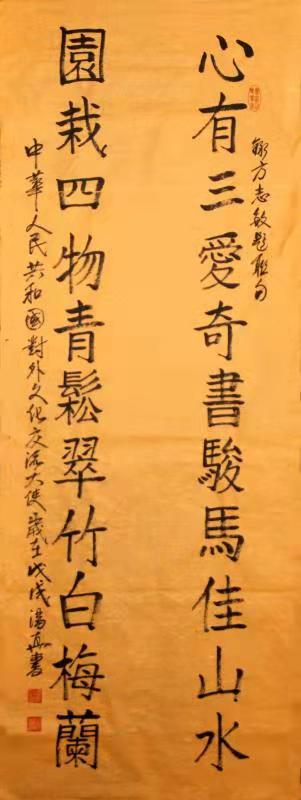 心有三愛奇書駿馬佳山水
錄方志敏題聯句
園栽四物青鬆翠竹白梅蘭
中華人民共和國對外文化交流大使歲在戊戌湯真書